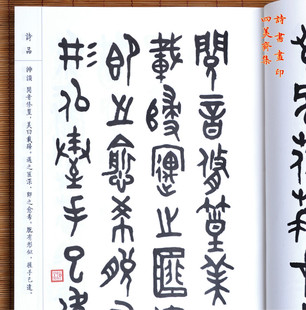 詩書畫印
四美齋集
閱音脩篁美
載歸遇之匪
即之愈希脫
形似握手已違
詩品
沖淡 閱音脩篁，美曰載歸。遇之匪深，即之愈希。脫有形似，握手已違。